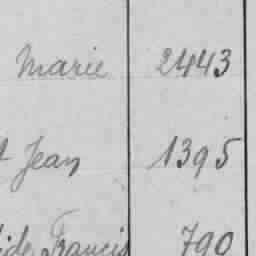 Marie 2443
Jean 1395
Francis 790